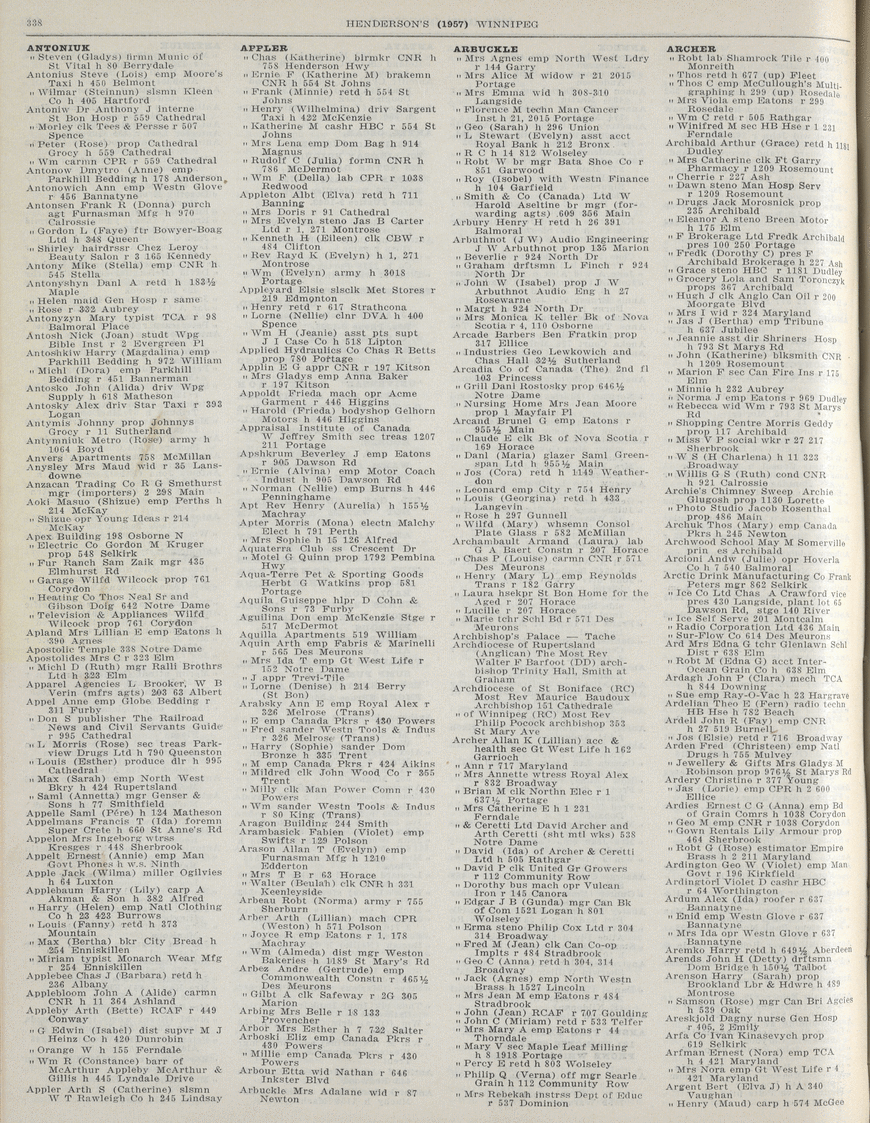 338
HENDERSON'S (1957) WINNIPEG
ANTONIUK
" Steven (Gladys) firmn Munic of
St Vital h 80 Berrydale
Antonius Steve (Lois) emp Moore's
Taxi h 450 Belmont
" Wilmar (Steinnun) slsmn Kleen
Co h 405 Hartford
Antoniw Dr Anthony J interne
St Bon Hosp r 559 Cathedral
" Morley clk Tees & Persse r 507
Spence
" Peter (Rose) prop Cathedral
Grocy r 11 Sutherland
" Wm carmn CPR r 559 Cathedral
Antonow Dmytro (Anne) emp
Parkhill Bedding h 178 Anderson
Antonowich Ann emp Westn Glove
r 456 Bannatyne
Antonsen Frank R (Donna) purch
agt Furnasman Mfg h 970
Calrossie
" Gordon L (Faye) ftr Bowyer-Boag
Ltd h 348 Queen
" Shirley hairdrssr Chez Leroy
Beauty Salon r 3 165 Kennedy
Antony Mike (Stella) emp CNR h
545 Stella
Antonyshyn Danl A retd h 183½
Maple
" Helen maid Gen Hosp r same
" Rose r 332 Aubrey
Antonyzyn Mary typist TCA r 98
Balmoral Place
Antosh Nick (Joan) studt Wpg
Bible Inst r 2 Evergreen Pl
Antoshkiw Harry (Magdalina) emp
Parkhill Bedding h 972 William
" Michl (Dora) emp Parkhill
Bedding r 451 Bannerman
Antosko John (Alida) driv Wpg
Supply h 618 Matheson
Antosky Alex driv Star Taxi r 393
Logan
Antymis Johnny prop Johnnys
Grocy r 11 Sutherland
Antymniuk Metro (Rose) army h
1064 Boyd
Anvers Apartments 758 McMillan
Anysley Mrs Maud wid r 35 Lans-
downe
Anzacan Trading Co R G Smethurst
mgr (importers) 2 298 Main
Aoki Masuo (Shizue) emp Perths h
214 McKay
" Shizue opr Young Ideas r 214
McKay
Apex Building 198 Osborne N
" Electric Co Gordon M Kruger
prop 548 Selkirk
" Fur Ranch Sam Zaik mgr 435
Elmhurst Rd
" Garage Wilfd Wilcock prop 761
Corydon
" Heating Co Thos Neal Sr and
Gibson Doig 642 Notre Dame
" Television & Appliances Wilfd
Wilcock prop 761 Corydon
Apland Mrs Lillian E emp Eatons h
390 Agnes
Apostolic Temple 338 Notre Dame
Apostolides Mrs C r 323 Elm
" Michl D (Ruth) mgr Ralli Brothrs
Ltd h 323 Elm
Apparel Agencies L Brooker, W B
Verin (mfrs agts) 203 63 Albert
Appel Anne emp Globe Bedding r
311 Furby
" Don S publisher The Railroad
News and Civil Servants Guide
r 995 Cathedral
" L Morris (Rose) sec treas Park-
view Drugs Ltd h 790 Queenston
" Louis (Esther) produce dlr h 995
Cathedral
" Max (Sarah) emp North West
Bkry h 424 Rupertsland
" Saml (Annetta) mgr Genser &
Sons h 77 Smithfield
Appelle Saml (Pére) h 124 Matheson
Appelmans Francis T (Ida) foremn
Super Crete h 660 St Anne's Rd
Appelon Mrs Ingeborg wtrss
Kresges r 448 Sherbrook
Appelt Ernest (Annie) emp Man
Govt Phones h w.s. Ninth
Apple Jack (Wilma) miller Ogilvies
h 64 Luxton
Applebaum Harry (Lily) carp A
Akman & Son h 382 Alfred
" Harry (Helen) emp Natl Clothing
Co h 23 423 Burrows
" Louis (Fanny) retd h 373
Mountain
" Max (Bertha) bkr City Bread h
254 Enniskillen
" Miriam typist Monarch Wear Mfg
r 254 Enniskillen
Applebee Chas J (Barbara) retd h
236 Albany
Applebloom John A (Alide) carmn
CNR h 11 364 Ashland
Appleby Arth (Bette) RCAF r 449
Conway
" G Edwin (Isabel) dist supvr M J
Heinz Co h 420 Dunrobin
" Orange W h 155 Ferndale
" Wm R (Constance) barr of
McArthur Appleby McArthur &
Gillis h 445 Lyndale Drive
Appler Arth S (Catherine) slsmn
W T Rawleigh Co h 245 Lindsay
APPLER
" Chas (Katherine) blrmkr CNR h
758 Henderson Hwy
" Ernie F (Katherine M) brakemn
CNR h 554 St Johns
" Frank (Minnie) retd h 554 St
Johns
" Henry (Wilhelmina) driv Sargent
Taxi h 422 McKenzie
" Katherine M cashr HBC r 554 St
Johns
" Mrs Lena emp Dom Bag h 914
Magnus
" Rudolf C (Julia) formn CNR h
786 McDermot
" Wm F (Della) lab CPR r 1038
Redwood
Appleton Albt (Elva) retd h 711
Banning
" Mrs Doris r 91 Cathedral
" Mrs Evelyn steno Jas B Carter
Ltd r 1, 271 Montrose
" Kenneth H (Eileen) clk CBW r
484 Clifton
" Rev Rayd K (Evelyn) h 1, 271
Montrose
" Wm (Evelyn) army h 3018
Portage
Appleyard Elsie slsclk Met Stores r
219 Edmonton
" Henry retd r 617 Strathcona
" Lorne (Nellie) clnr DVA h 400
Spence
" Wm H (Jeanie) asst pts supt
J I Case Co h 518 Lipton
Applied Hydraulics Co Chas R Betts
prop 780 Portage
Applin E G appr CNR r 197 Kitson
" Mrs Gladys emp Anna Baker
r 197 Kitson
Appoldt Frieda mach opr Acme
Garment r 446 Higgins
" Harold (Frieda) bodyshop Gelhorn
Motors h 446 Higgins
Appraisal Institute of Canada
W Jeffrey Smith sec treas 1207
211 Portage
Apshkrum Beverley J emp Eatons
r 905 Dawson Rd
" Ernie (Alvina) emp Motor Coach
Indust h 905 Dawson Rd
" Norman (Nellie) emp Burns h 446
Penninghame
Apt Rev Henry (Aurelia) h 155½
Machray
Apter Morris (Mona) electn Malchy
Elect h 791 Perth
" Mrs Sophie h 15 126 Alfred
Aquaterra Club ss Crescent Dr
" Motel G Quinn prop 1792 Pembina
Hwy
Aqua-Terre Pet & Sporting Goods
Herbt G Watkins prop 581
Portage
Aquila Guiseppe hlpr D Cohn &
Sons r 73 Furby
Aguilina Don emp McKenzie Stge r
517 McDermot
Aquilla Apartments 519 William
Aquin Arth emp Fabris & Marinelli
r 565 Des Meurons
" Mrs Ida T emp Gt West Life r
152 Notre Dame
" J appr Trevi-Tile
" Lorne (Denise) h 214 Berry
(St Bon)
Arabsky Ann E emp Royal Alex r
326 Melrose (Trans)
" E emp Canada Pkrs r 430 Powers
" Fred sander Westn Tools & Indus
r 326 Melrose (Trans)
" Harry (Sophie) sander Dom
Bronze h 335 Trent
" M emp Canada Pkrs r 424 Aikins
" Mildred clk John Wood Co r 355
Trent
" Milly clk Man Power Comn r 430
Powers
" Wm sander Westn Tools & Indus
r 80 King (Trans)
Aragon Building 244 Smith
Arambasick Fabien (Violet) emp
Swifts r 129 Polson
Arason Allan T (Evelyn) emp
Furnasman Mfg h 1210
Edderton
" Mrs T B r 63 Horace
" Walter (Beulah) clk CNR h 331
Keenleyside
Arbeau Robt (Norma) army r 755
Sherburn
Arber Arth (Lillian) mach CPR
(Weston) h 571 Polson
" Joyce R emp Eatons r 1, 178
Machray
" Wm (Almeda) dist mgr Weston
Bakeries h 1189 St Mary's Rd
Arbez Andre (Gertrude) emp
Commonwealth Constn r 465½
Des Meurons
" Gilbt A clk Safeway r 2G 305
Marion
Arbing Mrs Belle r 18 133
Provencher
Arbor Mrs Esther h 7 722 Salter
Arboski Eliz emp Canada Pkrs r
430 Powers
" Millie emp Canada Pkrs r 430
Powers
Arbour Etta wid Nathan r 646
Inkster Blvd
Arbuckle Mrs Adalane wid r 87
Newton
ARBUCKLE
" Mrs Agnes emp North West Ldry
r 144 Garry
" Mrs Alice M widow r 21 2015
Portage
" Mrs Emma wid h 308-310
Langside
" Florence M techn Man Cancer
Inst h 21, 2015 Portage
" Geo (Sarah) h 296 Union
" L Stewart (Evelyn) asst acct
Royal Bank h 212 Bronx
" R C h 14 812 Wolseley
" Robt W br mgr Bata Shoe Co r
851 Garwood
" Roy (Isobel) with Westn Finance
h 104 Garfield
" Smith & Co (Canada) Ltd W
Harold Aseltine br mgr (for-
warding agts) 609 356 Main
Arbury Henry H retd h 26 391
Balmoral
Arbuthnot (J W) Audio Engineering
J W Arbuthnot prop 135 Marion
" Beverlie r 924 North Dr
" Graham drftsmn L Finch r 924
North Dr
" John W (Isabel) prop J W
Arbuthnot Audio Eng h 27
Rosewarne
" Margt h 924 North Dr
" Mrs Monica K teller Bk of Nova
Scotia r 4, 110 Osborne
Arcade Barbers Ben Fratkin prop
317 Ellice
" Industries Geo Lewkowich and
Chas Hall 32½ Sutherland
Arcadia Co of Canada (The) 2nd fl
103 Princess
" Grill Dani Rostosky prop 646½
Notre Dame
" Nursing Home Mrs Jean Moore
prop 1 Mayfair Pl
Arcand Brunel G emp Eatons r
955½ Main
" Claude E clk Bk of Nova Scotia r
169 Horace
" Danl (Maria) glazer Saml Green-
span Ltd h 955½ Main
" Jos (Cora) retd h 1149 Weather-
don
" Leonard emp City r 754 Henry
" Louis (Georgina) retd h 433
Langevin
" Rose h 297 Gunnell
" Wilfd (Mary) whsemn Consol
Plate Glass r 582 McMillan
Archambault Armand (Laura) lab
G A Baert Constn r 207 Horace
" Chas P (Louise) carmn CNR r 571
Des Meurons
" Henry (Mary L) emp Reynolds
Trans r 182 Garry
" Laura hsekpr St Bon Home for the
Aged r 207 Horace
" Lucille r 207 Horace
" Marie tchr Schl Bd r 571 Des
Meurons
Archbishop's Palace — Tache
Archdiocese of Rupertsland
(Anglican) The Most Rev
Walter F Barfoot (DD) arch-
bishop Trinity Hall, Smith at
Graham
Archdiocese of St Boniface (RC)
Most Rev Maurice Baudoux
Archbishop 151 Cathedrale
" of Winnipeg (RC) Most Rev
Philip Pocock archbishop 353
St Mary Ave
Archer Allan K (Lillian) acc &
health sec Gt West Life h 162
Garrioch
" Ann r 717 Maryland
" Mrs Annette wtress Royal Alex
r 832 Broadway
" Brian M clk Northn Elec r 1
637½ Portage
" Mrs Catherine E h 1 231
Ferndale
" & Ceretti Ltd David Archer and
Arth Ceretti (sht mtl wks) 538
Notre Dame
" David (Ida) of Archer & Ceretti
Ltd h 505 Rathgar
" David P clk United Gr Growers
r 112 Community Row
" Dorothy bus mach opr Vulcan
Iron r 145 Canora
" Edgar J B (Gunda) mgr Can Bk
of Com 1521 Logan h 801
Wolseley
" Erma steno Philip Cox Ltd r 304
314 Broadway
" Fred M (Jean) clk Can Co-op
Implts r 484 Stradbrook
" Geo C (Anna) retd h 304, 314
Broadway
" Jack (Agnes) emp North Westn
Brass h 1527 Lincoln
" Mrs Jean M emp Eatons r 484
Stradbrook
" John (Jean) RCAF r 707 Goulding
" John C (Miriam) retd r 533 Telfer
" Mrs Mary A emp Eatons r 44
Thorndale
" Mary V sec Maple Leaf Milling
h 8 1918 Portage
" Percy E retd h 803 Wolseley
" Philip Q (Verna) off mgr Searle
Grain h 112 Community Row
" Mrs Rebekah instrss Dept of Educ
r 537 Dominion
ARCHER
" Robt lab Shamrock Tile r 400
Monreith
" Thos retd h 677 (up) Fleet
" Thos C emp McCullough's Multi-
graphing h 299 (up) Rosedale
" Mrs Viola emp Eatons r 299
Rosedale
" Wm C retd r 505 Rathgar
" Winifred M sec HB Hse r 1 231
Ferndale
Archibald Arthur (Grace) retd h 1181
Dudley
" Mrs Catherine clk Ft Garry
Pharmacy r 1209 Rosemount
" Cherrie r 227 Ash
" Dawn steno Man Hosp Serv
r 1209 Rosemount
" Drugs Jack Morosnick prop
235 Archibald
" Eleanor A steno Breen Motor
h 175 Elm
" F Brokerage Ltd Fredk Archibald
pres 100 250 Portage
" Fredk (Dorothy C) pres F
Archibald Brokerage h 227 Ash
" Grace steno HBC r 1181 Dudley
" Grocery Lola and Sam Toronczyk
props 367 Archibald
" Hugh J clk Anglo Can Oil r 200
Moorgate Blvd
" Mrs I wid r 324 Maryland
" Jas J (Bertha) emp Tribune
h 637 Jubilee
" Jeannie asst dir Shriners Hosp
h 793 St Marys Rd
" John (Katherine) blksmith CNR
h 1209 Rosemount
" Marion F sec Can Fire Ins r 175
Elm
" Minnie h 232 Aubrey
" Norma J emp Eatons r 969 Dudley
" Rebecca wid Wm r 793 St Marys
Rd
" Shopping Centre Morris Geddy
prop 117 Archibald
" Miss V P social wkr r 27 217
Sherbrook
" W S (H Charlena) h 11 323
Broadway
" Willis G S (Ruth) cond CNR
h 921 Calrossie
Archie's Chimney Sweep Archie
Glugosh prop 1130 Lorette
" Photo Studio Jacob Rosenthal
prop 486 Main
Archuk Thos (Mary) emp Canada
Pkrs h 245 Newton
Archwood School May M Somerville
prin es Archibald
Arcioni Andw (Julie) opr Hoveria
Co h 7 540 Balmoral
Arctic Drink Manufacturing Co Frank
Peters mgr 862 Selkirk
" Ice Co Ltd Chas A Crawford vice
pres 430 Langside, plant lot 65
Dawson Rd, stge 140 River
" Ice Self Serve 201 Montcalm
" Radio Corporation Ltd 436 Main
" Sur-Flow Co 614 Des Meurons
Ard Mrs Edna G tchr Glenlawn Schl
Dist r 638 Elm
" Robt M (Edna G) acct Inter-
Ocean Grain Co h 638 Elm
Ardagh John P (Clara) mech TCA
h 844 Downing
" Sue emp Ray-O-Vac h 23 Hargrave
Ardelian Theo E (Fern) radio techn
HB Hse h 782 Beach
Ardell John R (Fay) emp CNR
h 27 519 Burnell
" Jos (Elsie) retd r 716 Broadway
Arden Fred (Christeen) emp Natl
Drugs h 755 Mulvey
" Jewellery & Gifts Mrs Gladys M
Robinson prop 976½ St Marys Rd
Ardery Christine r 377 Young
" Jas (Lorie) emp CPR h 2 600
Ellice
Ardies Ernest C G (Anna) emp Bd
of Grain Comrs h 1038 Corydon
" Geo M emp CNR r 1038 Corydon
" Gown Rentals Lily Armour prop
464 Sherbrook
" Robt G (Rose) estimator Empire
Brass h 2 211 Maryland
Ardington Geo W (Violet) emp Man
Govt r 196 Kirkfield
Ardingtorf Violet D cashr HBC
r 64 Worthington
Ardum Alex (Ida) roofer r 637
Bannatyne
" Enid emp Westn Glove r 637
Bannatyne
" Mrs Ida opr Westn Glove r 637
Bannatyne
Aremko Harry retd h 649½ Aberdeen
Arends John H (Detty) drftsmn
Dom Bridge h 150½ Talbot
Arenson Harry (Sarah) prop
Brookland Lbr & Hdwre h 489
Montrose
" Samson (Rose) mgr Can Bri Agcies
h 539 Oak
Areskjold Dagny nurse Gen Hosp
r 405, 2 Emily
Arfa Co Ivan Kinasevych prop
619 Selkirk
Arfman Ernest (Nora) emp TCA
h 4 421 Maryland
" Mrs Nora emp Gt West Life r 4
421 Maryland
Argent Bert (Elva J) h A 340
Vaughan
" Henry (Maud) carp h 574 McGee